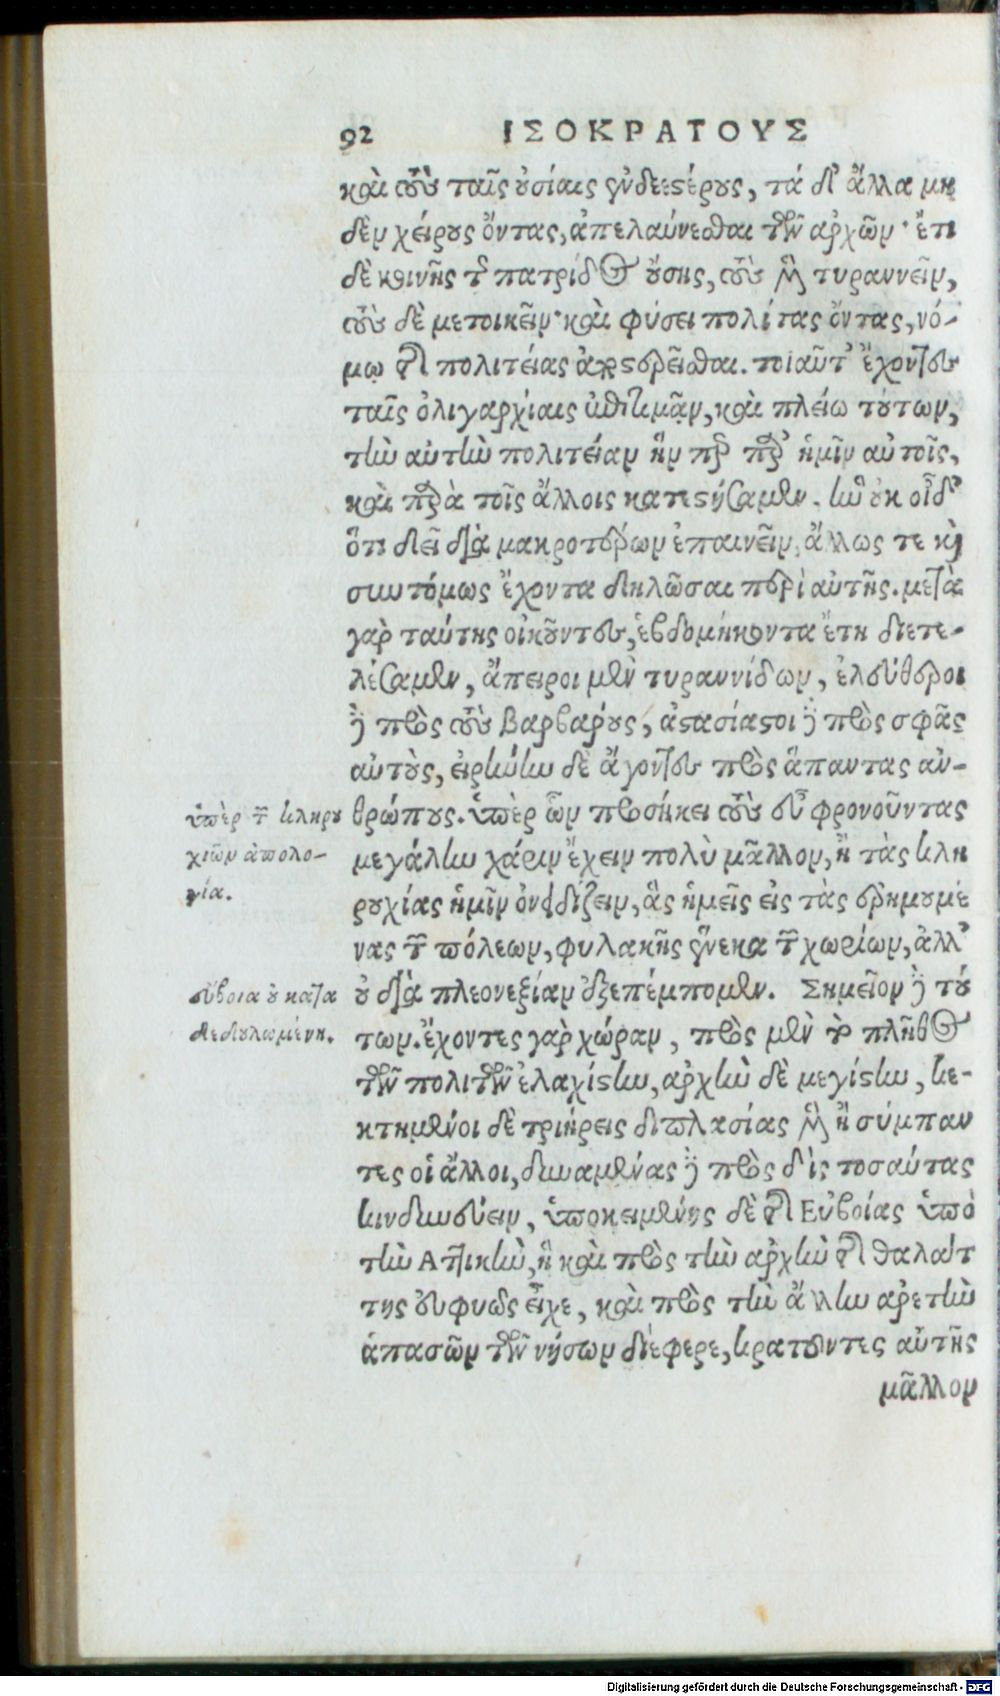 92 ΙΣΟΚΡΑΤΟΥΣ
καὶ τοὺς ταῖς οὐσίαις ἐνδεεστέρους, τὰ δ' ἄλλα μη
δὲν χείρους ὄντας, ἀπελαύνεσθαι τῶν ἀρχῶν· ἔτι
δὲ κοινῆς τῆς πατρίδος οὔσης, τοὺς μὲν τυραννεῖν,
τοὺς δὲ μετοικεῖν· καὶ φύσει πολίτας ὄντας, νό-
μῳ τῆς πολιτείας ἀποστερεῖσθαι. τοιαῦτ' ἔχοντες
ταῖς ὀλιγαρχίαις ἐπιτιμᾷν, καὶ πλείω τούτων,
τὴν αὐτὴν πολιτείαν ἥν περ παρ' ἡμῖν αὐτοῖς,
καὶ παρὰ τοῖς ἄλλοις κατεστήσαμεν. ἣν οὐκ οἶδ'
ὅτι δεῖ διὰ μακροτέρων ἐπαινεῖν, ἄλλως τε καὶ
συντόμως ἔχοντα δηλῶσαι περὶ αὐτῆς. μετὰ
γὰρ ταύτης οἰκοῦντες, ἑβδομήκοντα ἔτη διετε-
λέσαμεν, ἄπειροι μὲν τυραννίδων, ἐλεύθεροι
δὲ πρὸς τοὺς βαρβάρους, ἀστασίαστοι δὲ πρὸς σφᾶς
αὐτοὺς, εἰρήνην δὲ ἄγοντες πρὸς ἅπαντας ἀν-
θρώπους. ὑπὲρ ὧν προσήκει τοὺς εὖ φρονοῦντας
μεγάλην χάριν ἔχειν πολὺ μᾶλλον, ἢ τὰς κλη
ρουχίας ἡμῖν ὀνειδίζειν, ἃς ἡμεῖς εἰς τὰς ἐρημουμέ
νας τῶν πόλεων, φυλακῆς ἕνεκα τῶν χωρίων, ἀλλ'
οὐ διὰ πλεονεξίαν ἐξεπέμπομεν. Σημεῖον δὲ τού
των. ἔχοντες γὰρ χώραν, πρὸς μὲν τὸ πλῆθος
τῶν πολιτῶν ἐλαχίστην, ἀρχὴν δὲ μεγίστην, κε-
κτημένοι δὲ τριήρεις διπλασίας μὲν ἢ σύμπαν
τες οἱ ἄλλοι, δυναμένας δὲ πρὸς δὶς τοσαύτας
κινδυνεύειν, ὑποκειμένης δὲ τῆς Εὐβοίας ὑπὸ
τὴν Ἀττικὴν, ἣ καὶ πρὸς τὴν ἀρχὴν τῆς θαλάτ
της εὐφυῶς εἶχε, καὶ πρὸς τὴν ἄλλην ἀρετὴν
ἁπασῶν τῶν νήσων διέφερε, κρατοῦντες αὐτῆς
μᾶλλον
ὑπὲρ τῶν κληρου
χιῶν ἀπολο-
γία.
εὔβοια οὐ κατα
δεδουλωμένη.
Digitalisierung gefördert durch die Deutsche Forschungsgemeinschaft - DFG